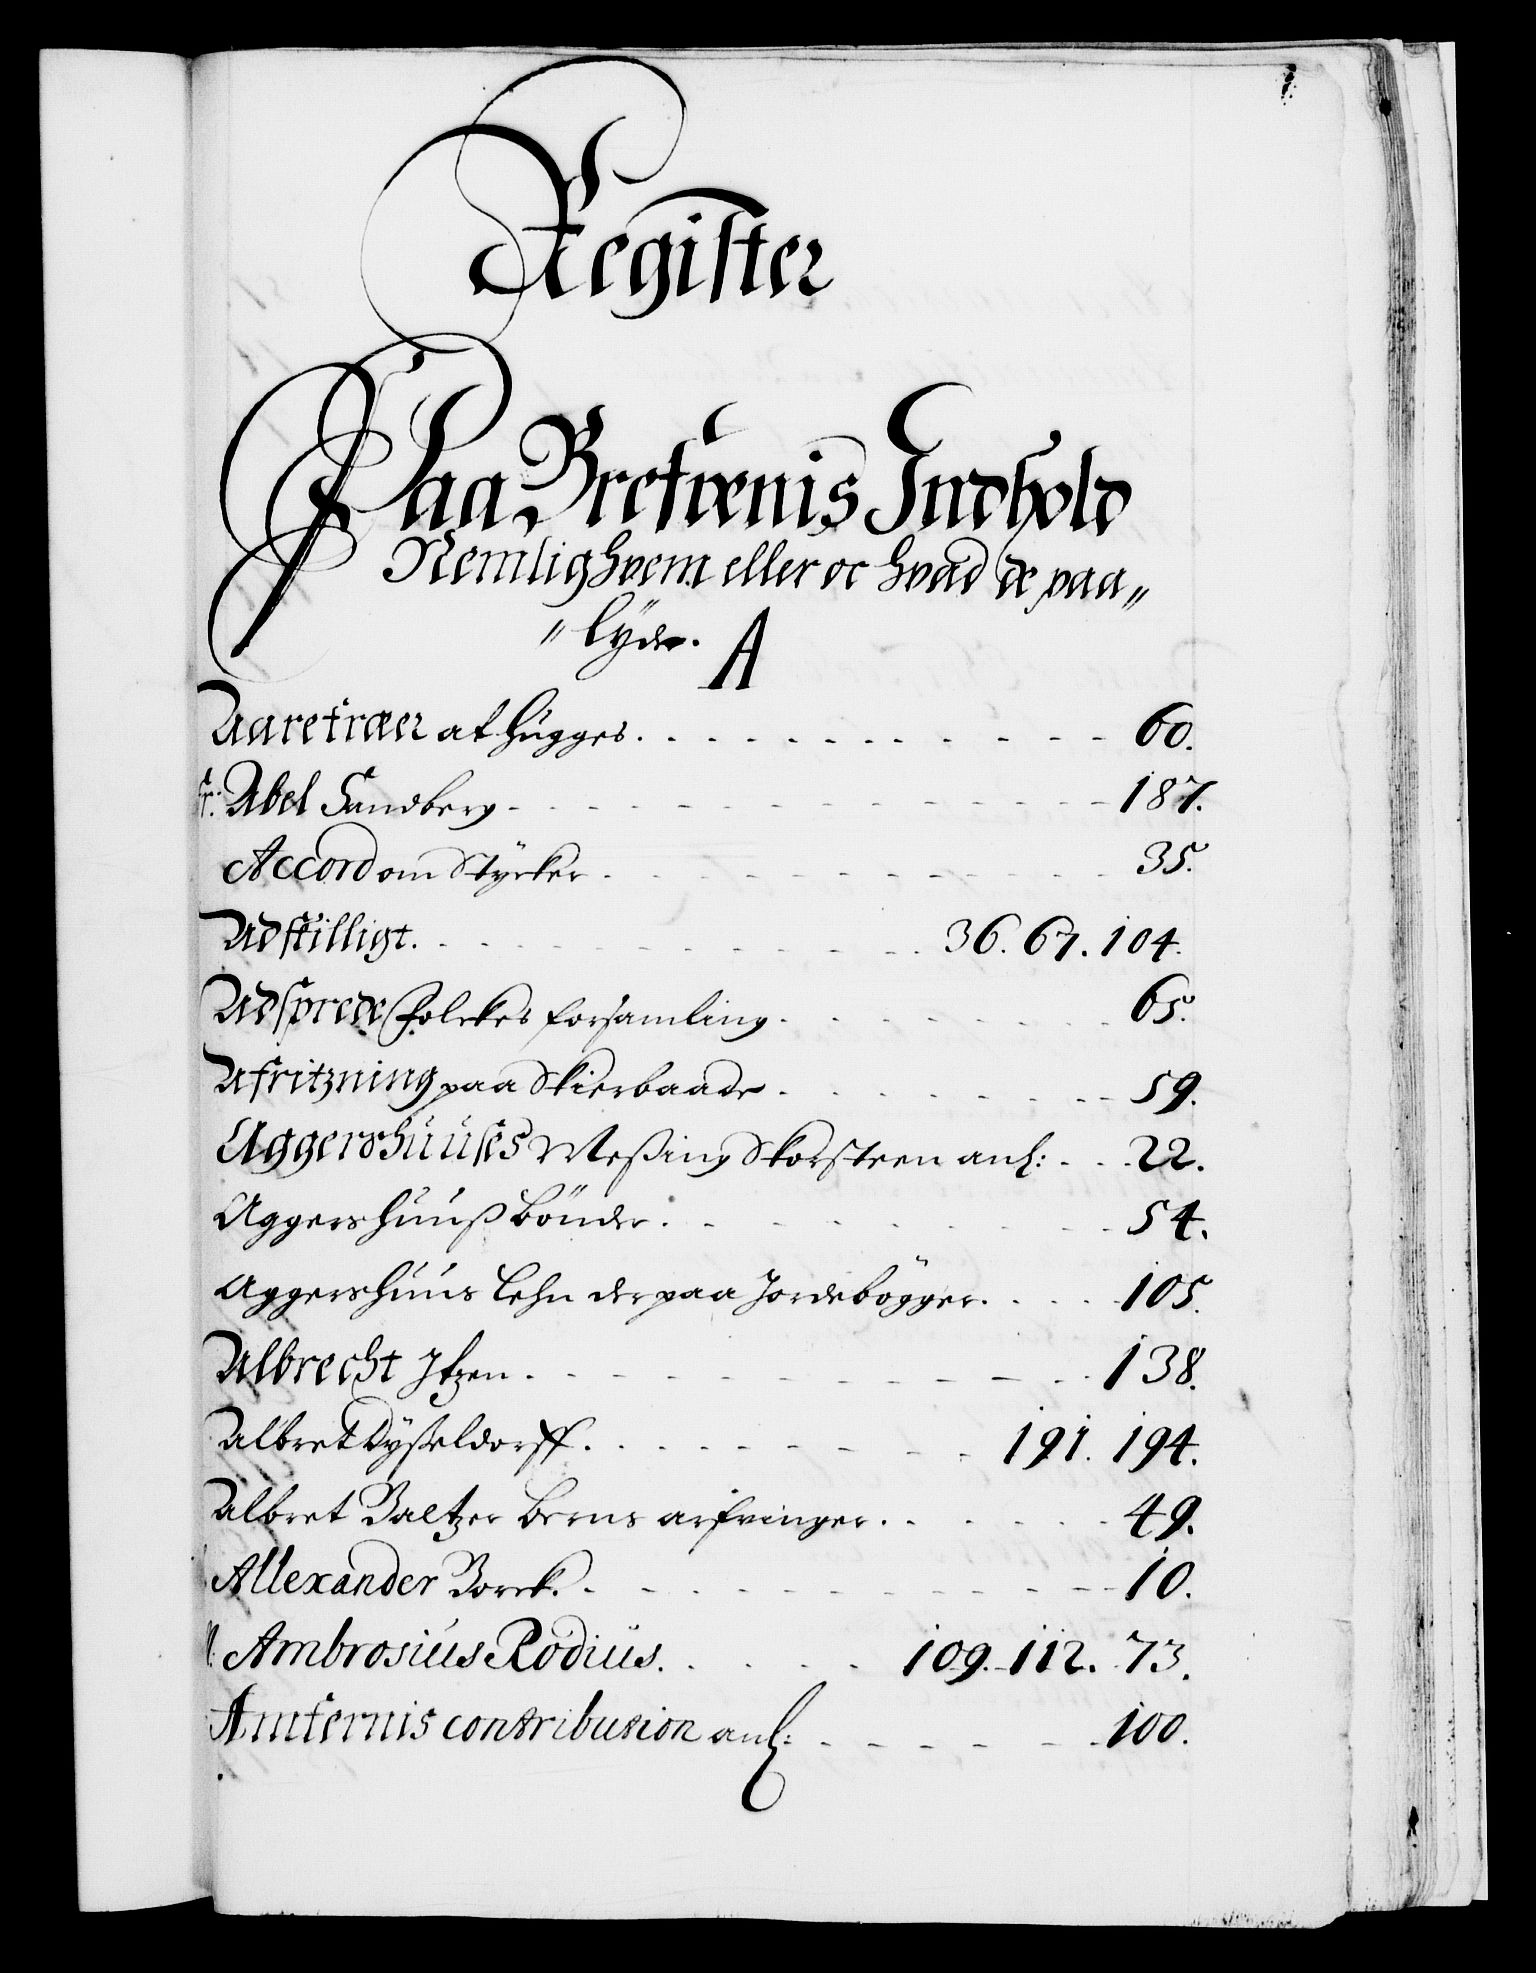 Register
Paa Brefvenis Indhold
Nemlig hvem eller oc hvad de paa„
„lyde. A
Aaretræer at hugges. 60.
Fr: Abel Sandberg 187.
Accord om Stycker 35.
Adskilligt. 36. 67. 104.
Adsprede Folckes forsamling. 65.
Afritzning paa Skierbaade. 59.
Aggershuuses Messing Skorsteen anl: 22.
Aggershuuß bönder. 54.
Aggershuus lehn der paa Jordebögger. 105.
Albrecht Itzen. 138.
Albret Dysseldorff. 191. 194.
Albret Baltzer Berns arfvinger. 49.
Allexander Borck. 10.
M: Ambrosius Rodius. 109. 112. 73.
Amternis contribution anl: 100.